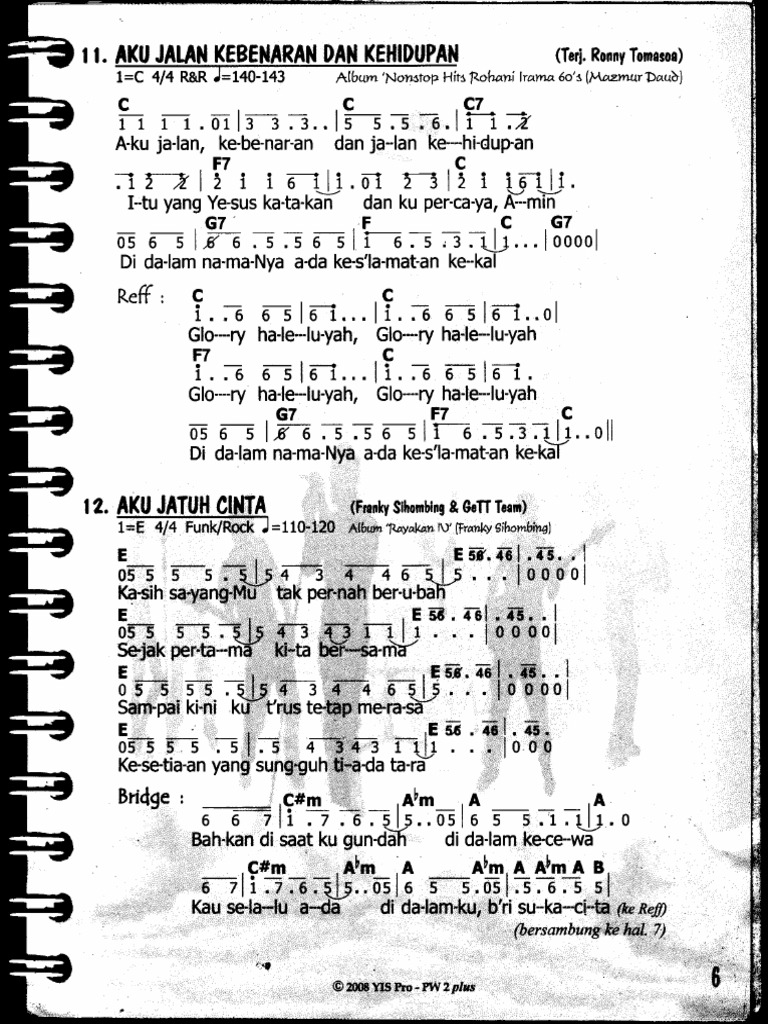 11. AKU JALAN KEBENARAN DAN KEHIDUPAN (Terj. Ronny Tomasoa)
1=C 4/4 R&R ♩=140-143 Album 'Nonstop Hits Rohani Irama 60's (Mazmur Daud)
C C C7
1 1 1 1 . 01 | 3 3 . 3 . . | 5 5 . 5 . 6 . | 1 1 . 2
A-ku ja-lan, ke-be-nar-an dan ja-lan ke---hi-dup-an
F7 C
. 1 2 2 | 2 1 1 6 1 | 1 . 01 2 3 | 2 1 16 1 | 1 .
I-tu yang Ye-sus ka-ta-kan dan ku per-ca-ya, A---min
G7 F C G7
05 6 5 | 6 6 . 5 . 5 6 5 | 1 6 . 5 . 3 . 1 | 1 . . . | 0000 |
Di da-lam na-ma-Nya a-da ke-s'la-mat-an ke--kal
Reff :
C C
1 . . 6 6 5 | 6 1 . . . | 1 . . 6 6 5 | 6 1 . . 0 |
Glo---ry ha-le--lu-yah, Glo---ry ha-le--lu-yah
F7 C
1 . . 6 6 5 | 6 1 . . . | 1 . . 6 6 5 | 6 1 .
Glo---ry ha-le--lu-yah, Glo---ry ha-le--lu-yah
G7 F7 C
05 6 5 | 6 6 . 5 . 5 6 5 | 1 6 . 5 . 3 . 1 | 1 . . 0 ||
Di da-lam na-ma-Nya a-da ke-s'la-mat-an ke-kal
12. AKU JATUH CINTA (Franky Sihombing & GeTT Team)
1=E 4/4 Funk/Rock ♩=110-120 Album 'Rayakan IV' (Franky Sihombing)
E E 56 . 46 | . 45 . . |
05 5 5 5 . 5 | 5 4 3 4 4 6 5 | 5 . . . | 0 0 0 0 |
Ka-sih sa-yang-Mu tak per-nah ber-u-bah
E E 56 . 46 | . 45 . . |
05 5 5 5 . 5 | 5 4 3 4 3 1 1 | 1 . . . | 0 0 0 0 |
Se-jak per-ta--ma ki-ta ber---sa-ma
E E 56 . 46 | . 45 . . |
0 5 5 5 5 . 5 | 5 4 3 4 4 6 5 | 5 . . . | 0 0 0 0 |
Sam-pai ki-ni ku t'rus te-tap me-ra-sa
E E 56 . 46 | . 45 .
05 5 5 5 . 5 | . 5 4 3 4 3 1 1 | 1 . . . | 0 0 0
Ke-se-tia-an yang sung-guh ti-a-da ta-ra
Bridge :
C#m A♭m A A
6 6 7 | 1 . 7 . 6 . 5 | 5 . . 05 | 6 5 5 . 1 . 1 | 1 . 0
Bah-kan di saat ku gun-dah di da-lam ke-ce-wa
C#m A♭m A A♭m A A♭m A B
6 7 | 1 . 7 . 6 . 5 | 5 . . 05 | 6 5 5 . 05 | . 5 . 6 . 5 5 |
Kau se-la--lu a--da di da-lam-ku, b'ri su--ka--ci-ta (ke Reff)
(bersambung ke hal. 7)
6
© 2008 YIS Pro - PW 2 plus